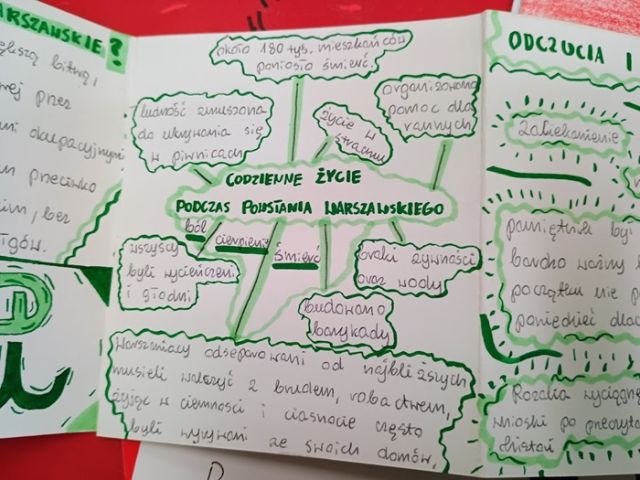 ARSZAWSKIE?
bitwą i
wej przez
okupacyjnymi
przeciwko
bez
około 180 tyś. mieszkańców
poniosło śmierć.
ludność zmuszona
do ukrywania się
w piwnicach
życie w
strachu
organizowano
pomoc dla
rannych
CODZIENNE ŻYCIE
PODCZAS POWSTANIA WARSZAWSKIEGO
ból
cierpienie
śmierć
wszyscy
byli wycieńczeni
i głodni
budowano
barykady
braki żywności
oraz wody
Warszawiacy odseparowani od najbliższych
musieli walczyć z brudem, robactwem,
żyjąc w ciemności i ciasnocie często
byli wyrywani ze swoich domów.
ODCZUCIA I
Zaciekawienie
pamiętnik był
bardzo ważny
początku nie
powiedzieć
Rozalia
wnioski po